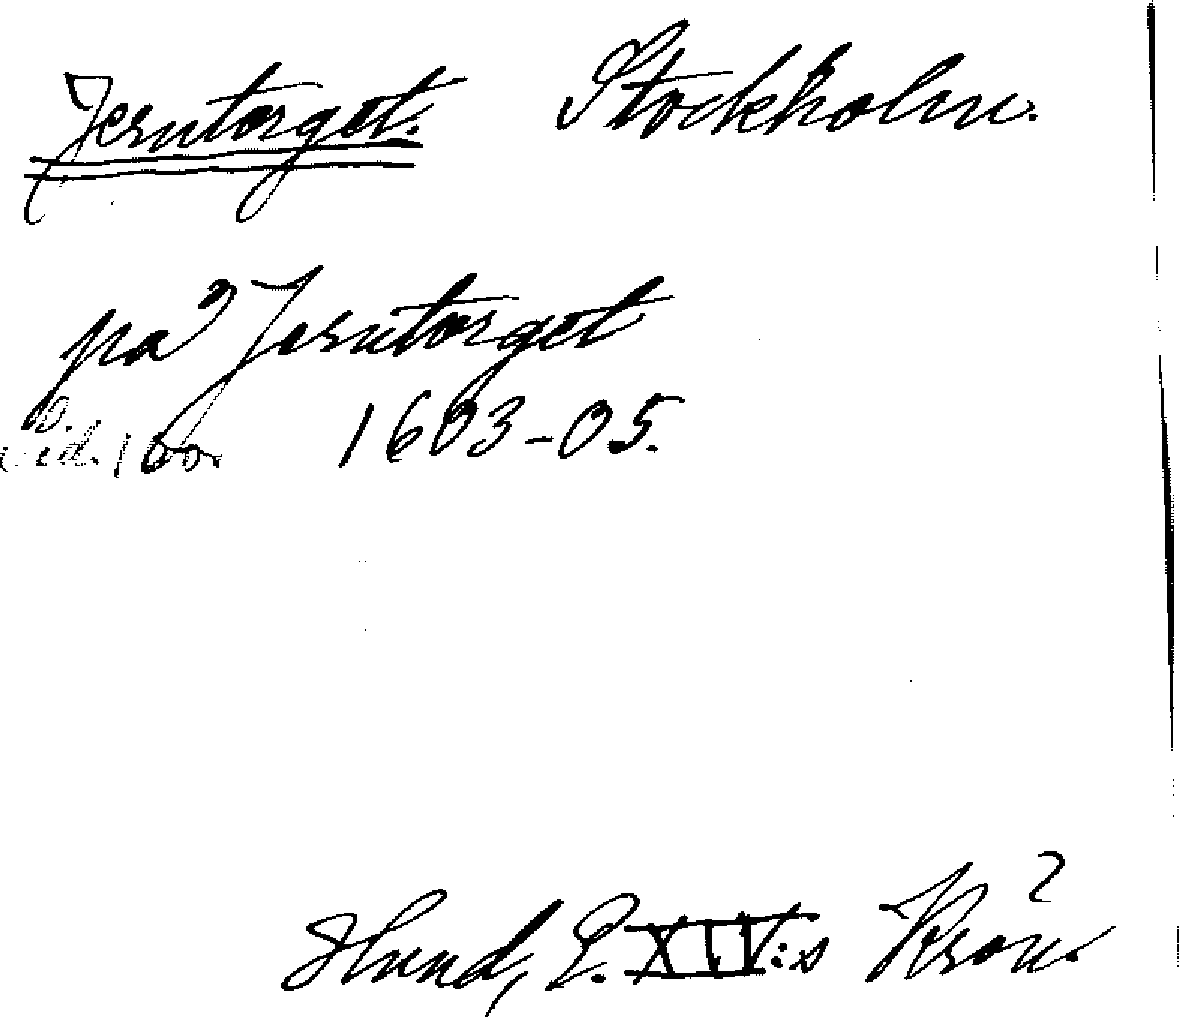 Jerntorget. Stockholm.
på Jerntorget
S.
sid. 100. 1603-05.
Hund, E. XIV:s Krön.